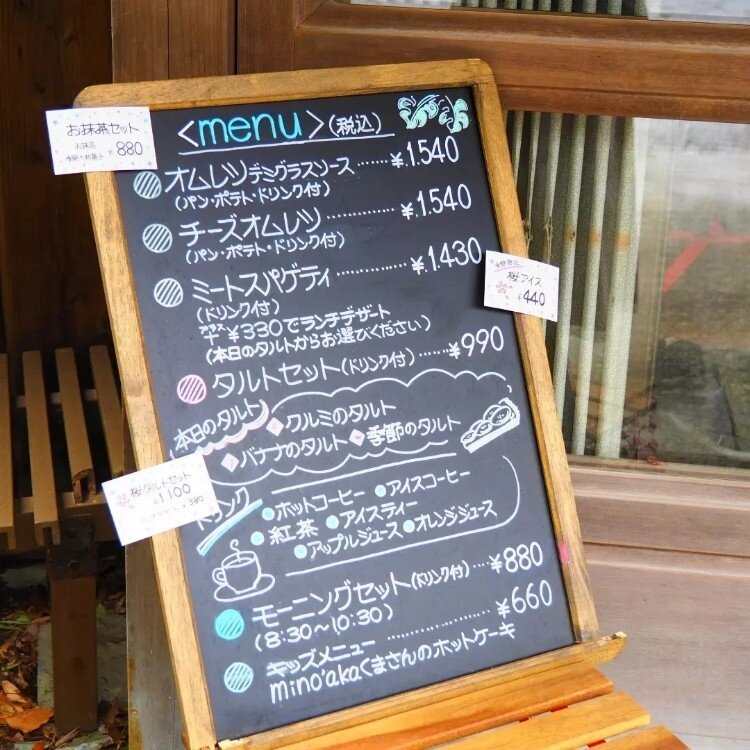 お抹茶セット
お抹茶
季節の和菓子 ¥880
<menu>(税込)
オムレツデミグラスソース……¥1.540
(パン・ポテト・ドリンク付)
チーズオムレツ……¥.1.540
(パン・ポテト・ドリンク付)
ミートスパゲティ……¥.1.430
(ドリンク付)
プラス
+¥330でランチデザート
(本日のタルトからお選びください)
桜アイス
¥440
タルトセット(ドリンク付)……¥990
本日のタルト
クルミのタルト
バナナのタルト 季節のタルト
桜タルトセット
¥1100
ドリンク
ホットコーヒー アイスコーヒー
紅茶 アイスティー
アップルジュース オレンジジュース
モーニングセット(ドリンク付)…¥880
(8:30〜10:30)
キッズメニュー……¥660
mino'akaくまさんのホットケーキ